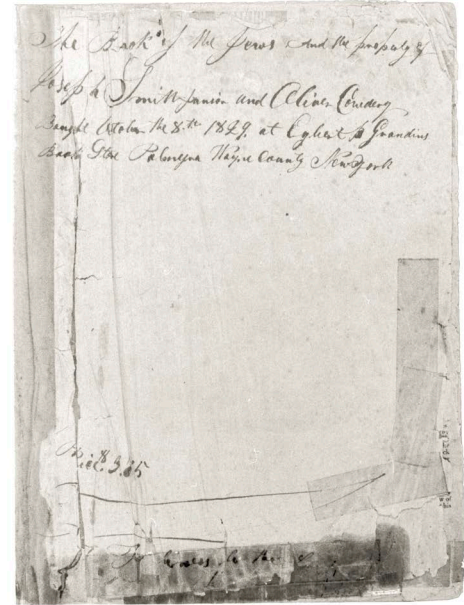 The Book of the Jews And the property of
Joseph Smith Junior and Oliver Cowdery
Bought October the 8th 1829 at Egbert B Grandins
Book Store Palmyra Wayne County New York
Price $3.75
Holiness to the